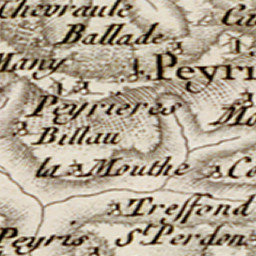 Chevraule
Ballade
Many
Peyri
Peyrieres
Billau
la Mouthe
Treffond
Peyris
St Perdon